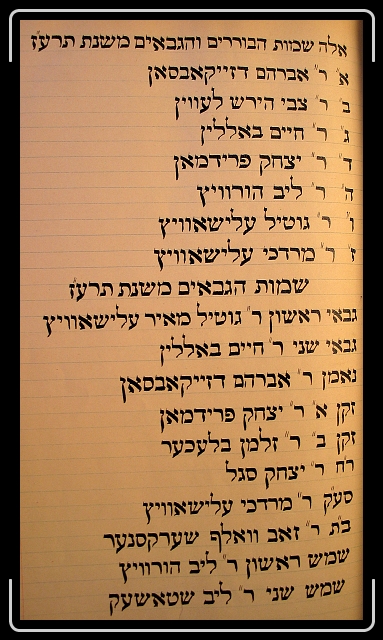 אלה שמות הבוררים והגבאים משנת תרע״ז
א׳ ר׳ אברהם דזייקאבסאן
ב׳ ר׳ צבי הירש לעווין
ג׳ ר׳ חיים באללין
ד׳ ר׳ יצחק פרידמאן
ה׳ ר׳ ליב הורוויץ
ו׳ ר׳ גוטיל עלישאוויץ
ז׳ ר׳ מרדכי עלישאוויץ
שמות הגבאים משנת תרע״ז
גבאי ראשון ר׳ גוטיל מאיר עלישאוויץ
גבאי שני ר׳ חיים באללין
נאמן ר׳ אברהם דזייקאבסאן
זקן א׳ ר׳ יצחק פרידמאן
זקן ב׳ ר׳ זלמן בלעכער
ר״ח ר׳ יצחק סגל
סע״ק ר׳ מרדכי עלישאוויץ
ב״ת ר׳ זאב וואלף שערקסנער
שמש ראשון ר׳ ליב הורוויץ
שמש שני ר׳ ליב שטאשעק